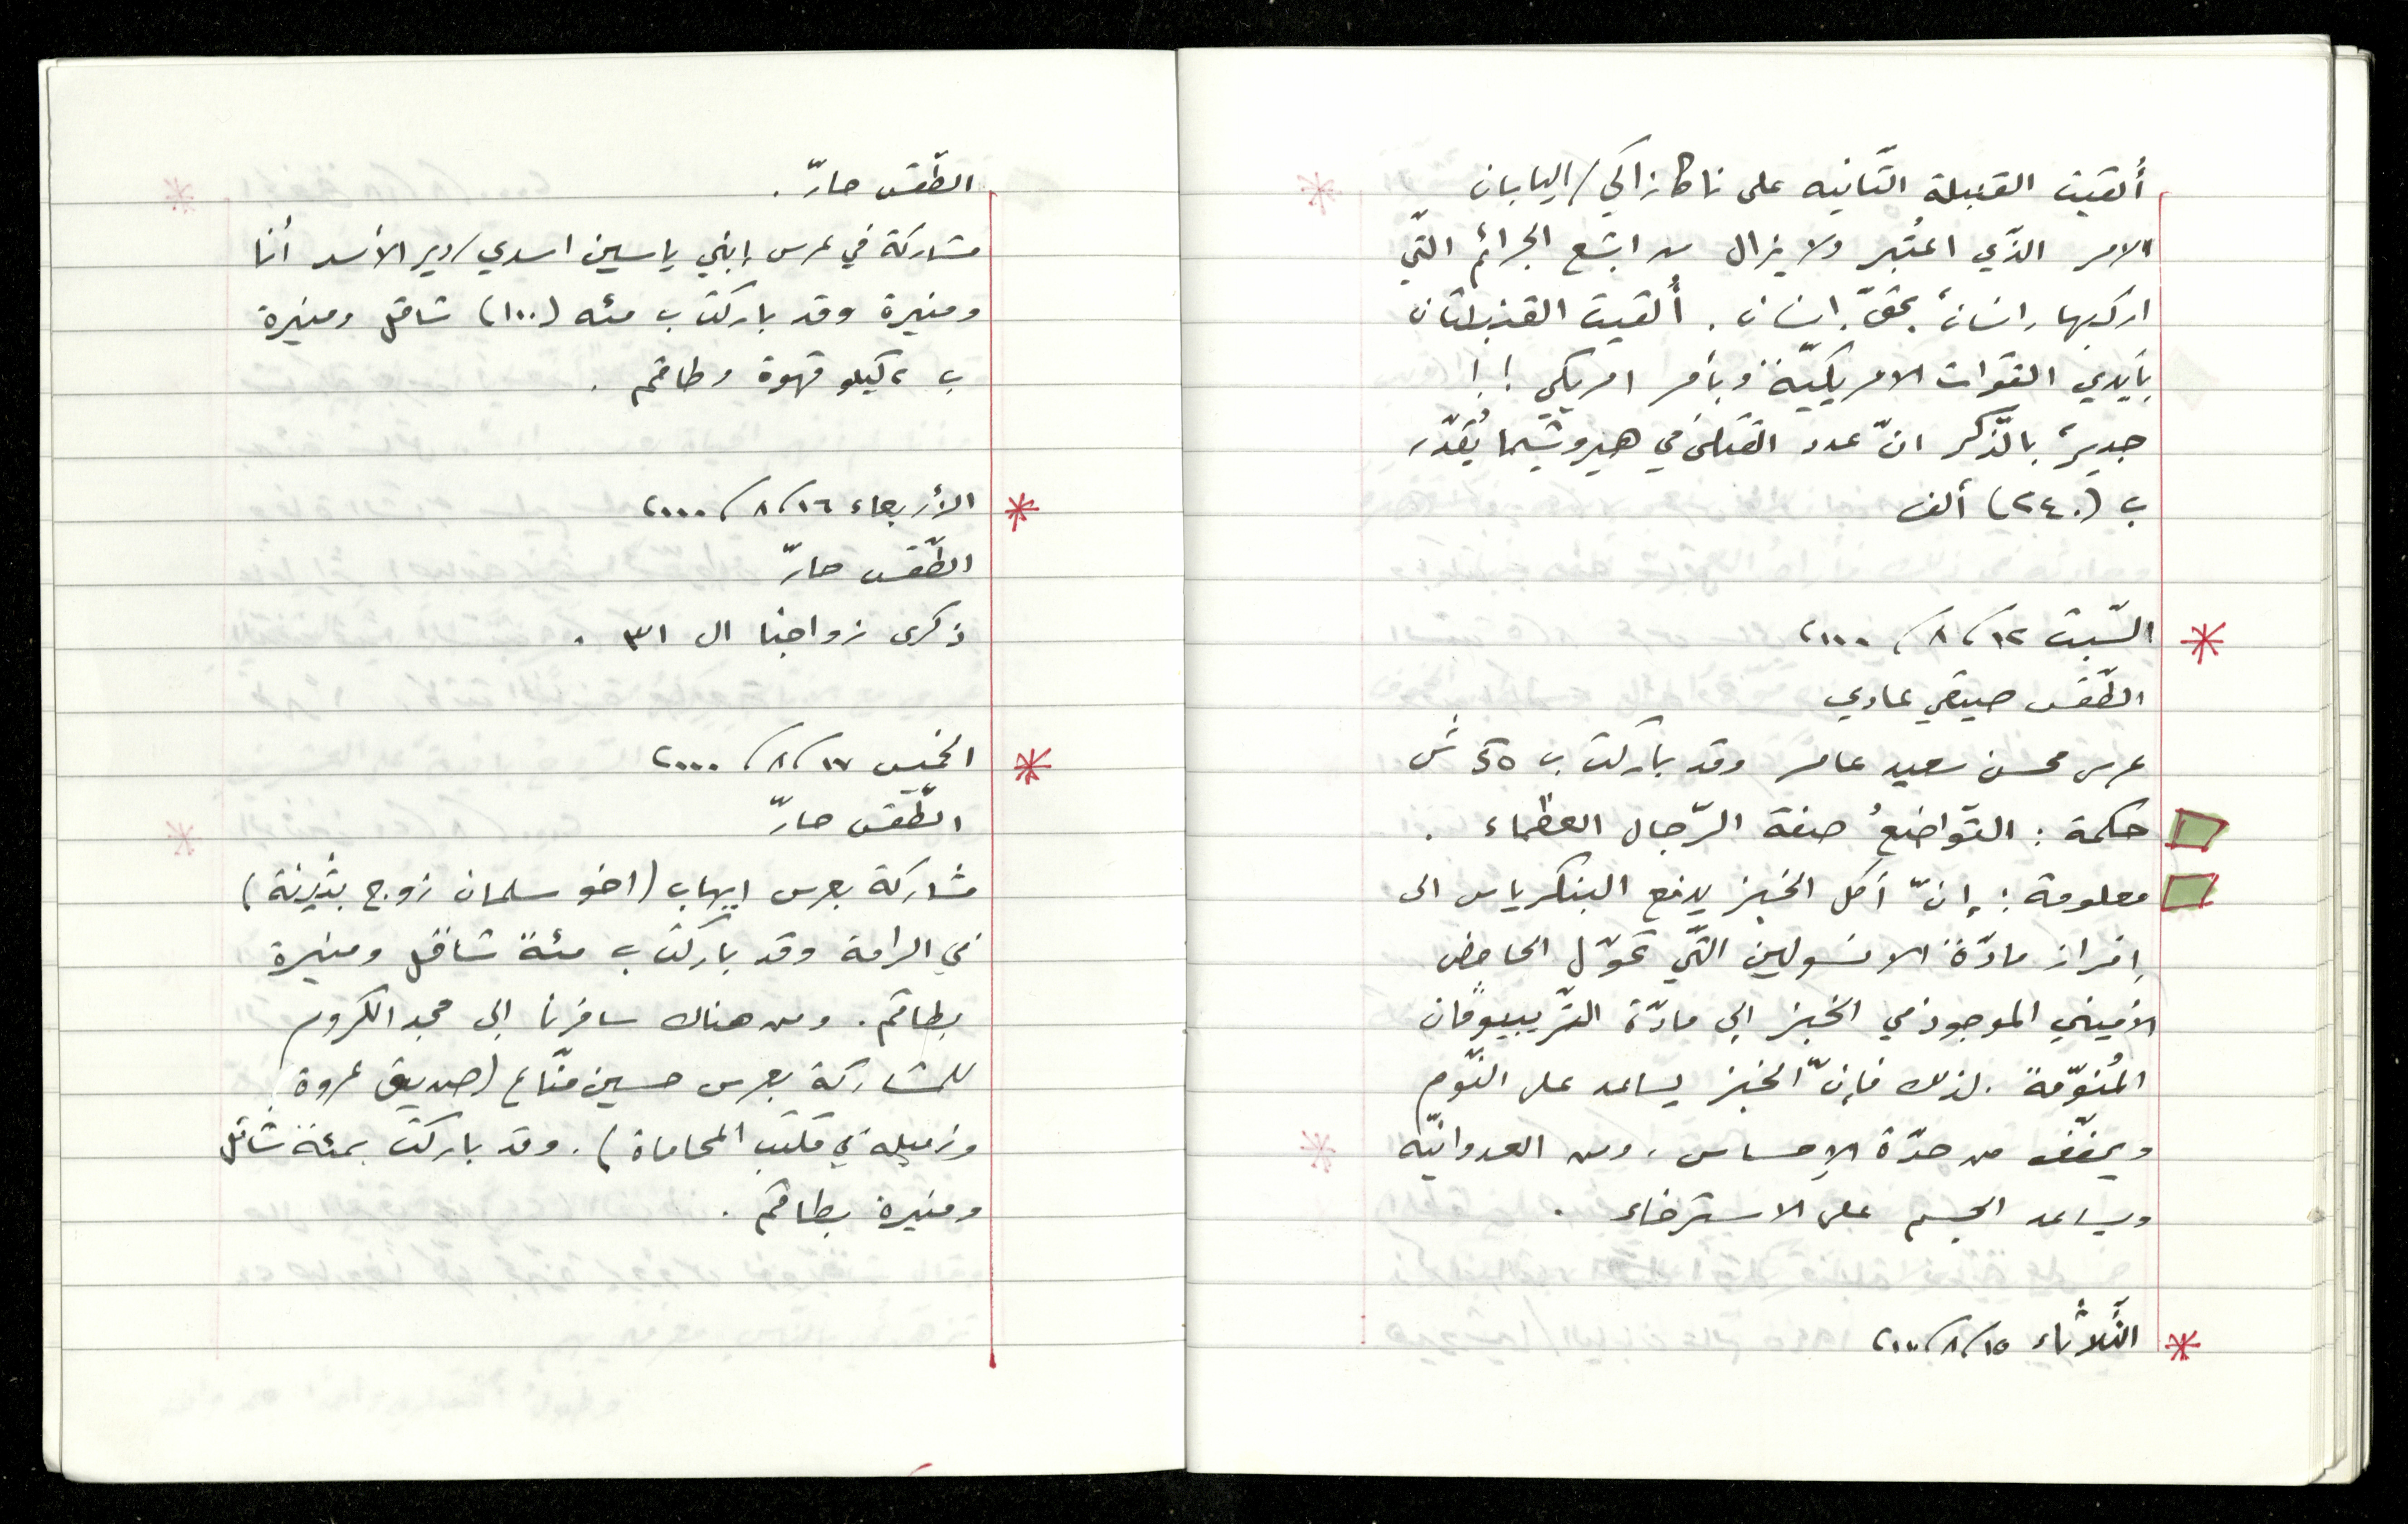 ألقيت القنبلة الثّانيه على ناكازاكي/اليابان
الامر الذّي اعتُبر ولا يزال من ابشع الجرائم التّي
ارتكبها إنسانٌ بحقّ إنسان. أُلقيت القنبلتان
بأيدي القوات الامريكيّة وبأمر امريكي!!
جديرٌ بالذّكر انّ عدد القتلى في هيروشيما يُقدّر
ب (٢٤٠) ألف
* السّبت ١٢/٨/٢٠٠٠
الطّقس صيفي عادي
عرس محسن سعيد عامر وقد باركت ب ٢٥٠ ش
حكمة: التّواضعُ صفة الرّجال العظماء.
معلومة: إنّ أكل الخبز يدفع البنكرياس الى
إفراز مادّة الانسولين التّي تحوّل الحامض
الأميني الموجود في الخبز الى مادّة التّريبيوفان
المُنوّمة. لذلك فإنّ الخبز يساعد على النّوم
ويخفّف من حدّة الإحساس، ومن العدوانيّه
ويساعد الجسم على الاسترخاء.
* الثّلاثاء ١٥/٨/٢٠٠٠
الطّقس حارّ.
مشاركة في عرس إبني ياسين اسدي/دير الأسد أنا
ومنيرة وقد باركت ب مئه (١٠٠) شاقل ومنيرة
ب ٢ كيلو قهوة وطاقم.
* الأربعاء ١٦/٨/٢٠٠٠
الطّقس حارّ
ذكرى زواجنا ال ٣١.
* الخميس ١٧/٨/٢٠٠٠
الطّقس حارّ
مشاركة بعرس ايهاب (اخو سلمان زوج بثينة)
في الرامة وقد باركت ب مئة شاقل ومنيرة
بطاقم. ومن هناك سافرنا الى مجد الكروم
للمشاركة بعرس حسين منّاع (صديق عروة
وزميله في مكتب المحاماة). وقد باركت بمئة شاقل
ومنيرة بطاقم.